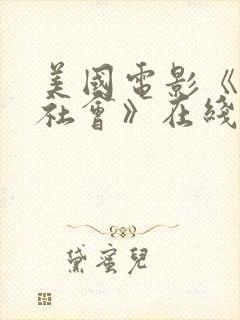 美國電影《
社會》在綫
黛蜜兒